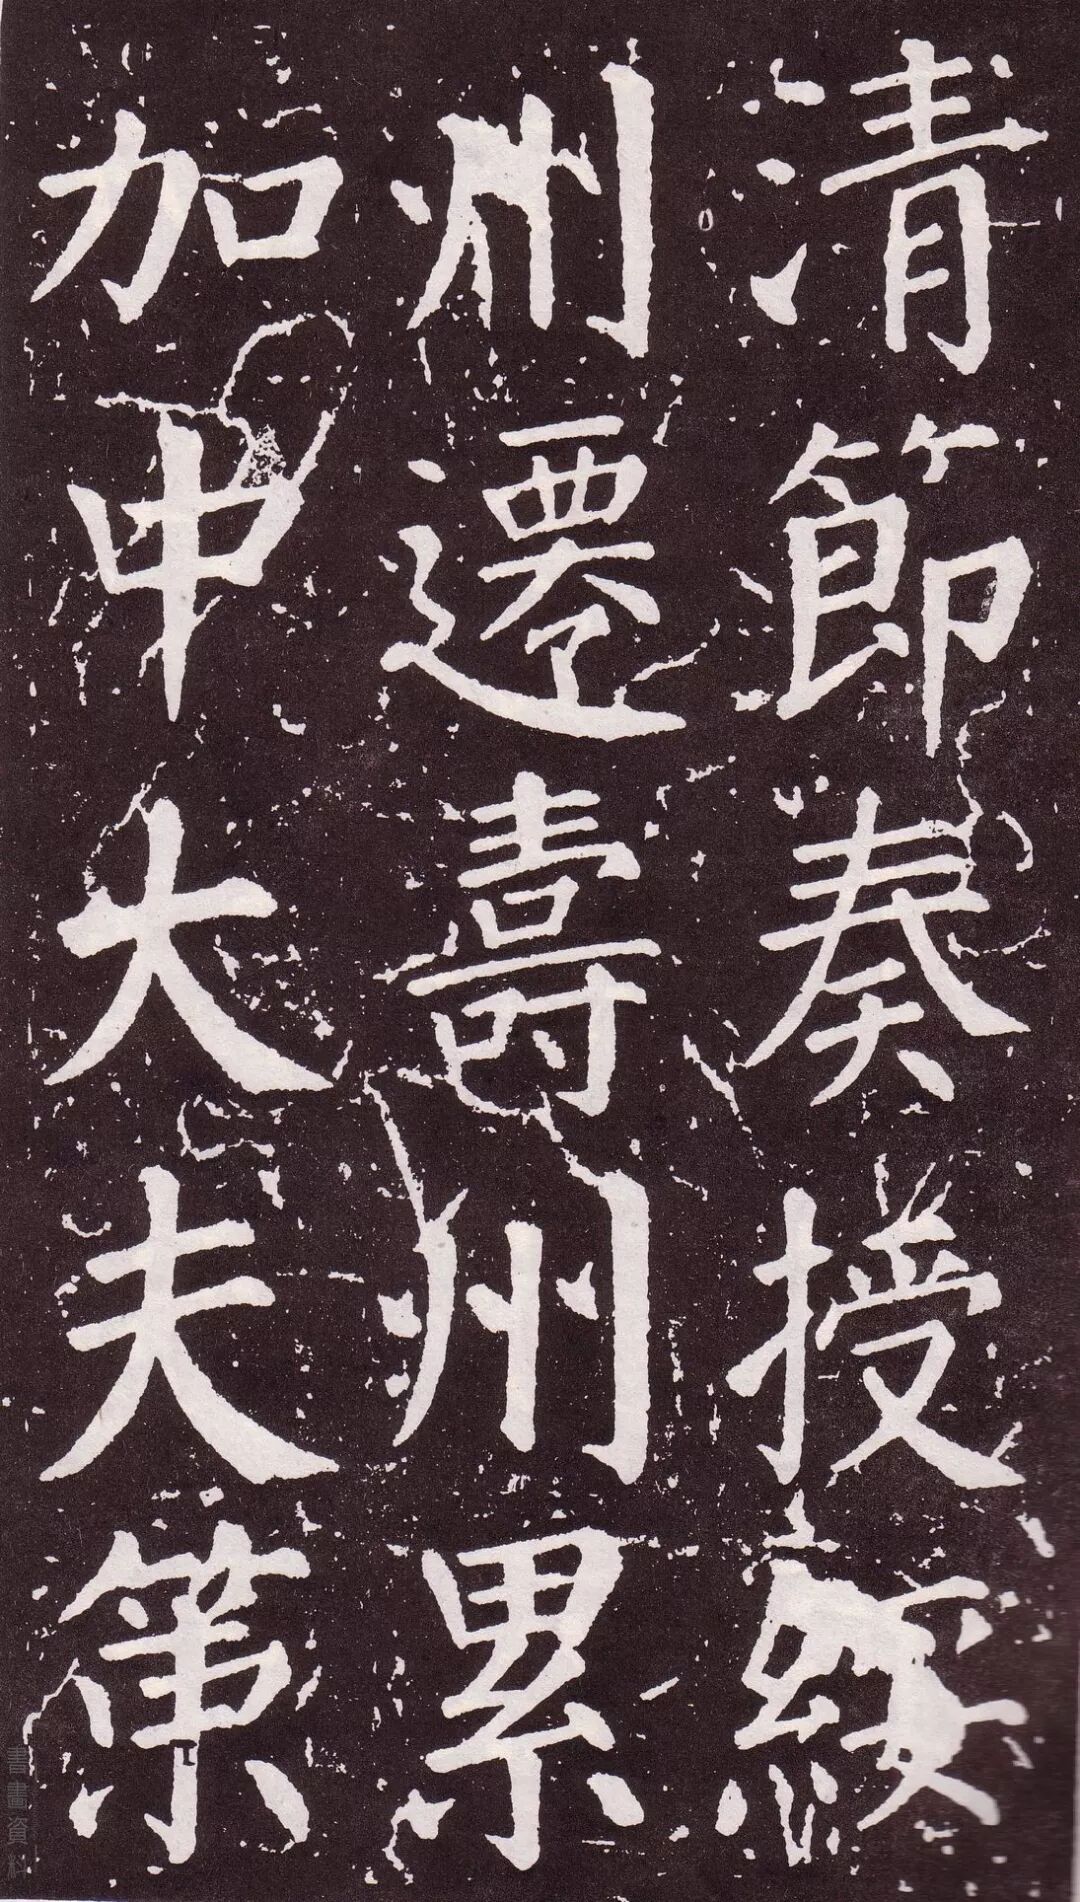 清節奏授綏
州遷壽州累
加中大夫策
書畫資料